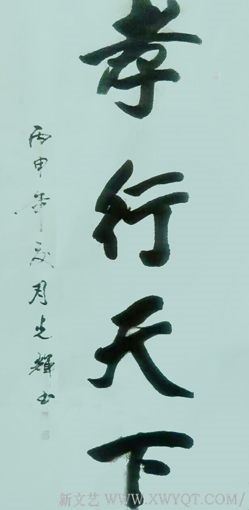 孝行天下
丙申年夏月光辉书
新文艺 WWW.XWYQT.COM/